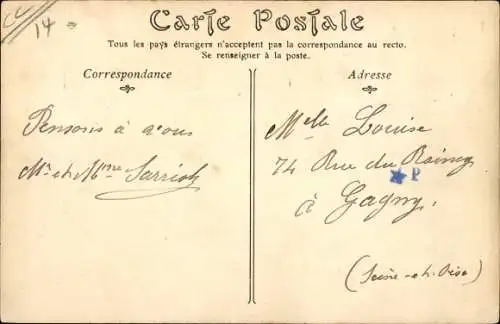 14
Carte Postale
Tous les pays étrangers n'acceptent pas la correspondance au recto.
Se renseigner à la poste.
Correspondance
Pensons à vous
Mr et Mme
Adresse
Melle Louise
74 Rue du Raincy
P
à Gagny.
(Seine-et-Oise)